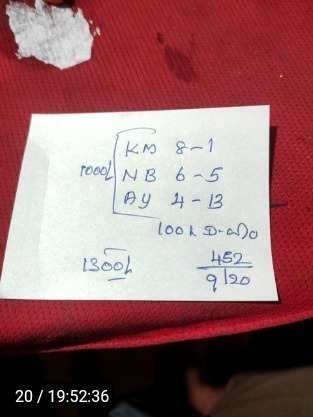 KM 8-1
1000L NB 6-5
AY 4-13
100L
1300L 452
9/20
20 / 19:52:36